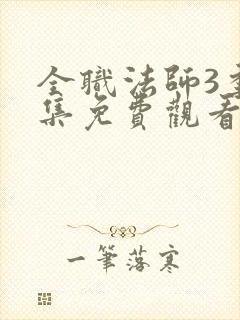 全職法師3季
集免費觀看
一筆落寒